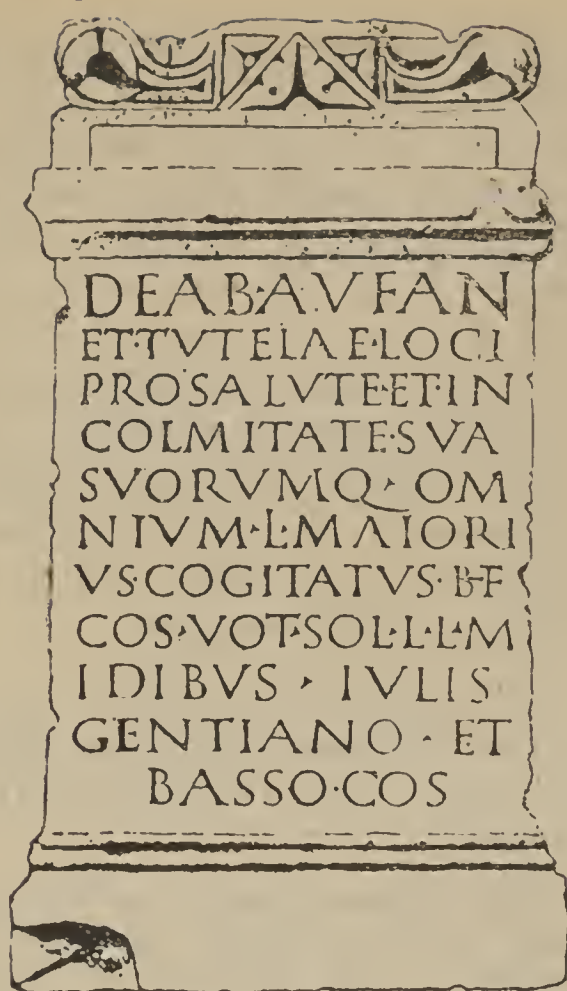 DEAB·AVFAN
ET·TVTELAE·LOCI
PRO SALVTE·ET·IN
COLMITATE·SVA
SVORVMQ· OM
NIVM·L·MAIORI
VS·COGITATVS·BF
COS·VOT·SOL·L·L·M
IDIBVS · IVLIS
GENTIANO · ET
BASSO·COS